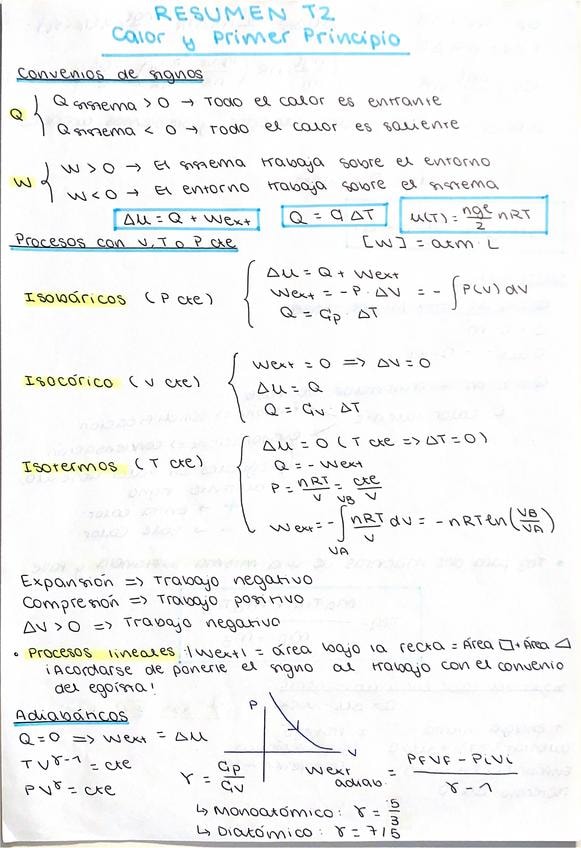 RESUMEN T2
Calor y Primer Principio
Convenios de signos
Q { Q sistema > 0 → Todo el calor es entrante
Q sistema < 0 → Todo el calor es saliente
W { W > 0 → El sistema trabaja sobre el entorno
W < 0 → El entorno trabaja sobre el sistema
ΔU = Q + Wext   Q = C ΔT   U(T) = ngl/2 nRT
Procesos con V, T o P cte   [W] = atm · L
ΔU = Q + Wext
Isobáricos (P cte) { Wext = -P · ΔV = - ∫ P(V) dV
Q = Cp ΔT
Wext = 0 => ΔV = 0
Isocórico (V cte) { ΔU = Q
Q = Cv · ΔT
ΔU = 0 (T cte => ΔT = 0)
Isotermos (T cte) { Q = - Wext
P = nRT/V = cte/V
Wext = - ∫VA^VB nRT/V dV = - nRT ln(VB/VA)
Expansión => Trabajo negativo
Compresión => Trabajo positivo
ΔV > 0 => Trabajo negativo
• Procesos lineales: |Wext| = área bajo la recta = Área □ + Área ◁
¡Acordarse de ponerle el signo al trabajo con el convenio
del egoísta!
Adiabáticos
P
V
Q = 0 => Wext = ΔU
TV^γ-1 = cte
PV^γ = cte
γ = Cp/Cv   Wext adiab. = PfVf - PiVi / γ - 1
↳ Monoatómico: γ = 5/3
↳ Diatómico: γ = 7/5